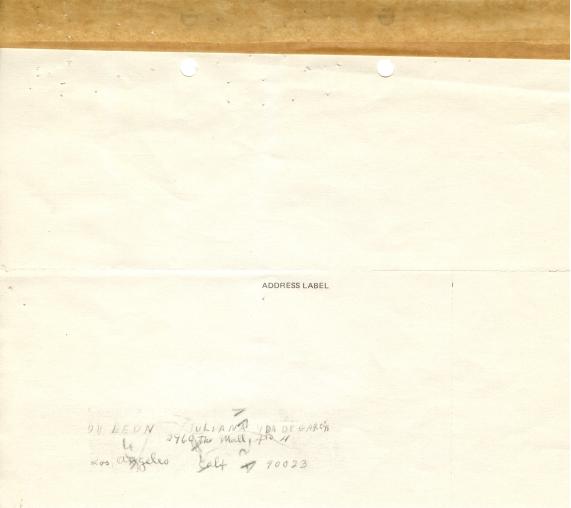 ADDRESS LABEL
DE LEON JULIANA VDA DE GARCIA
2960 The Mall,
Los Angeles Calf 90023